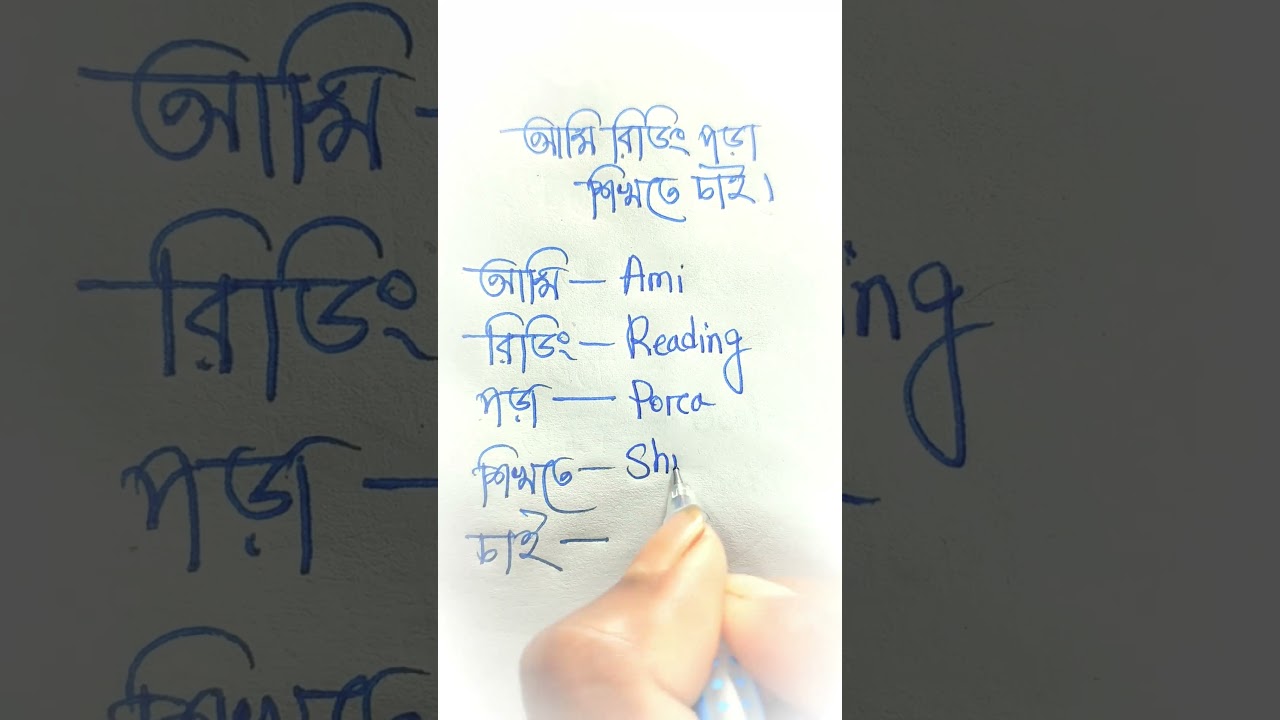 আমি রিডিং পড়া
শিখতে চাই।
আমি — Ami
রিডিং — Reading
পড়া — Porca
শিখতে — Shi
চাই —